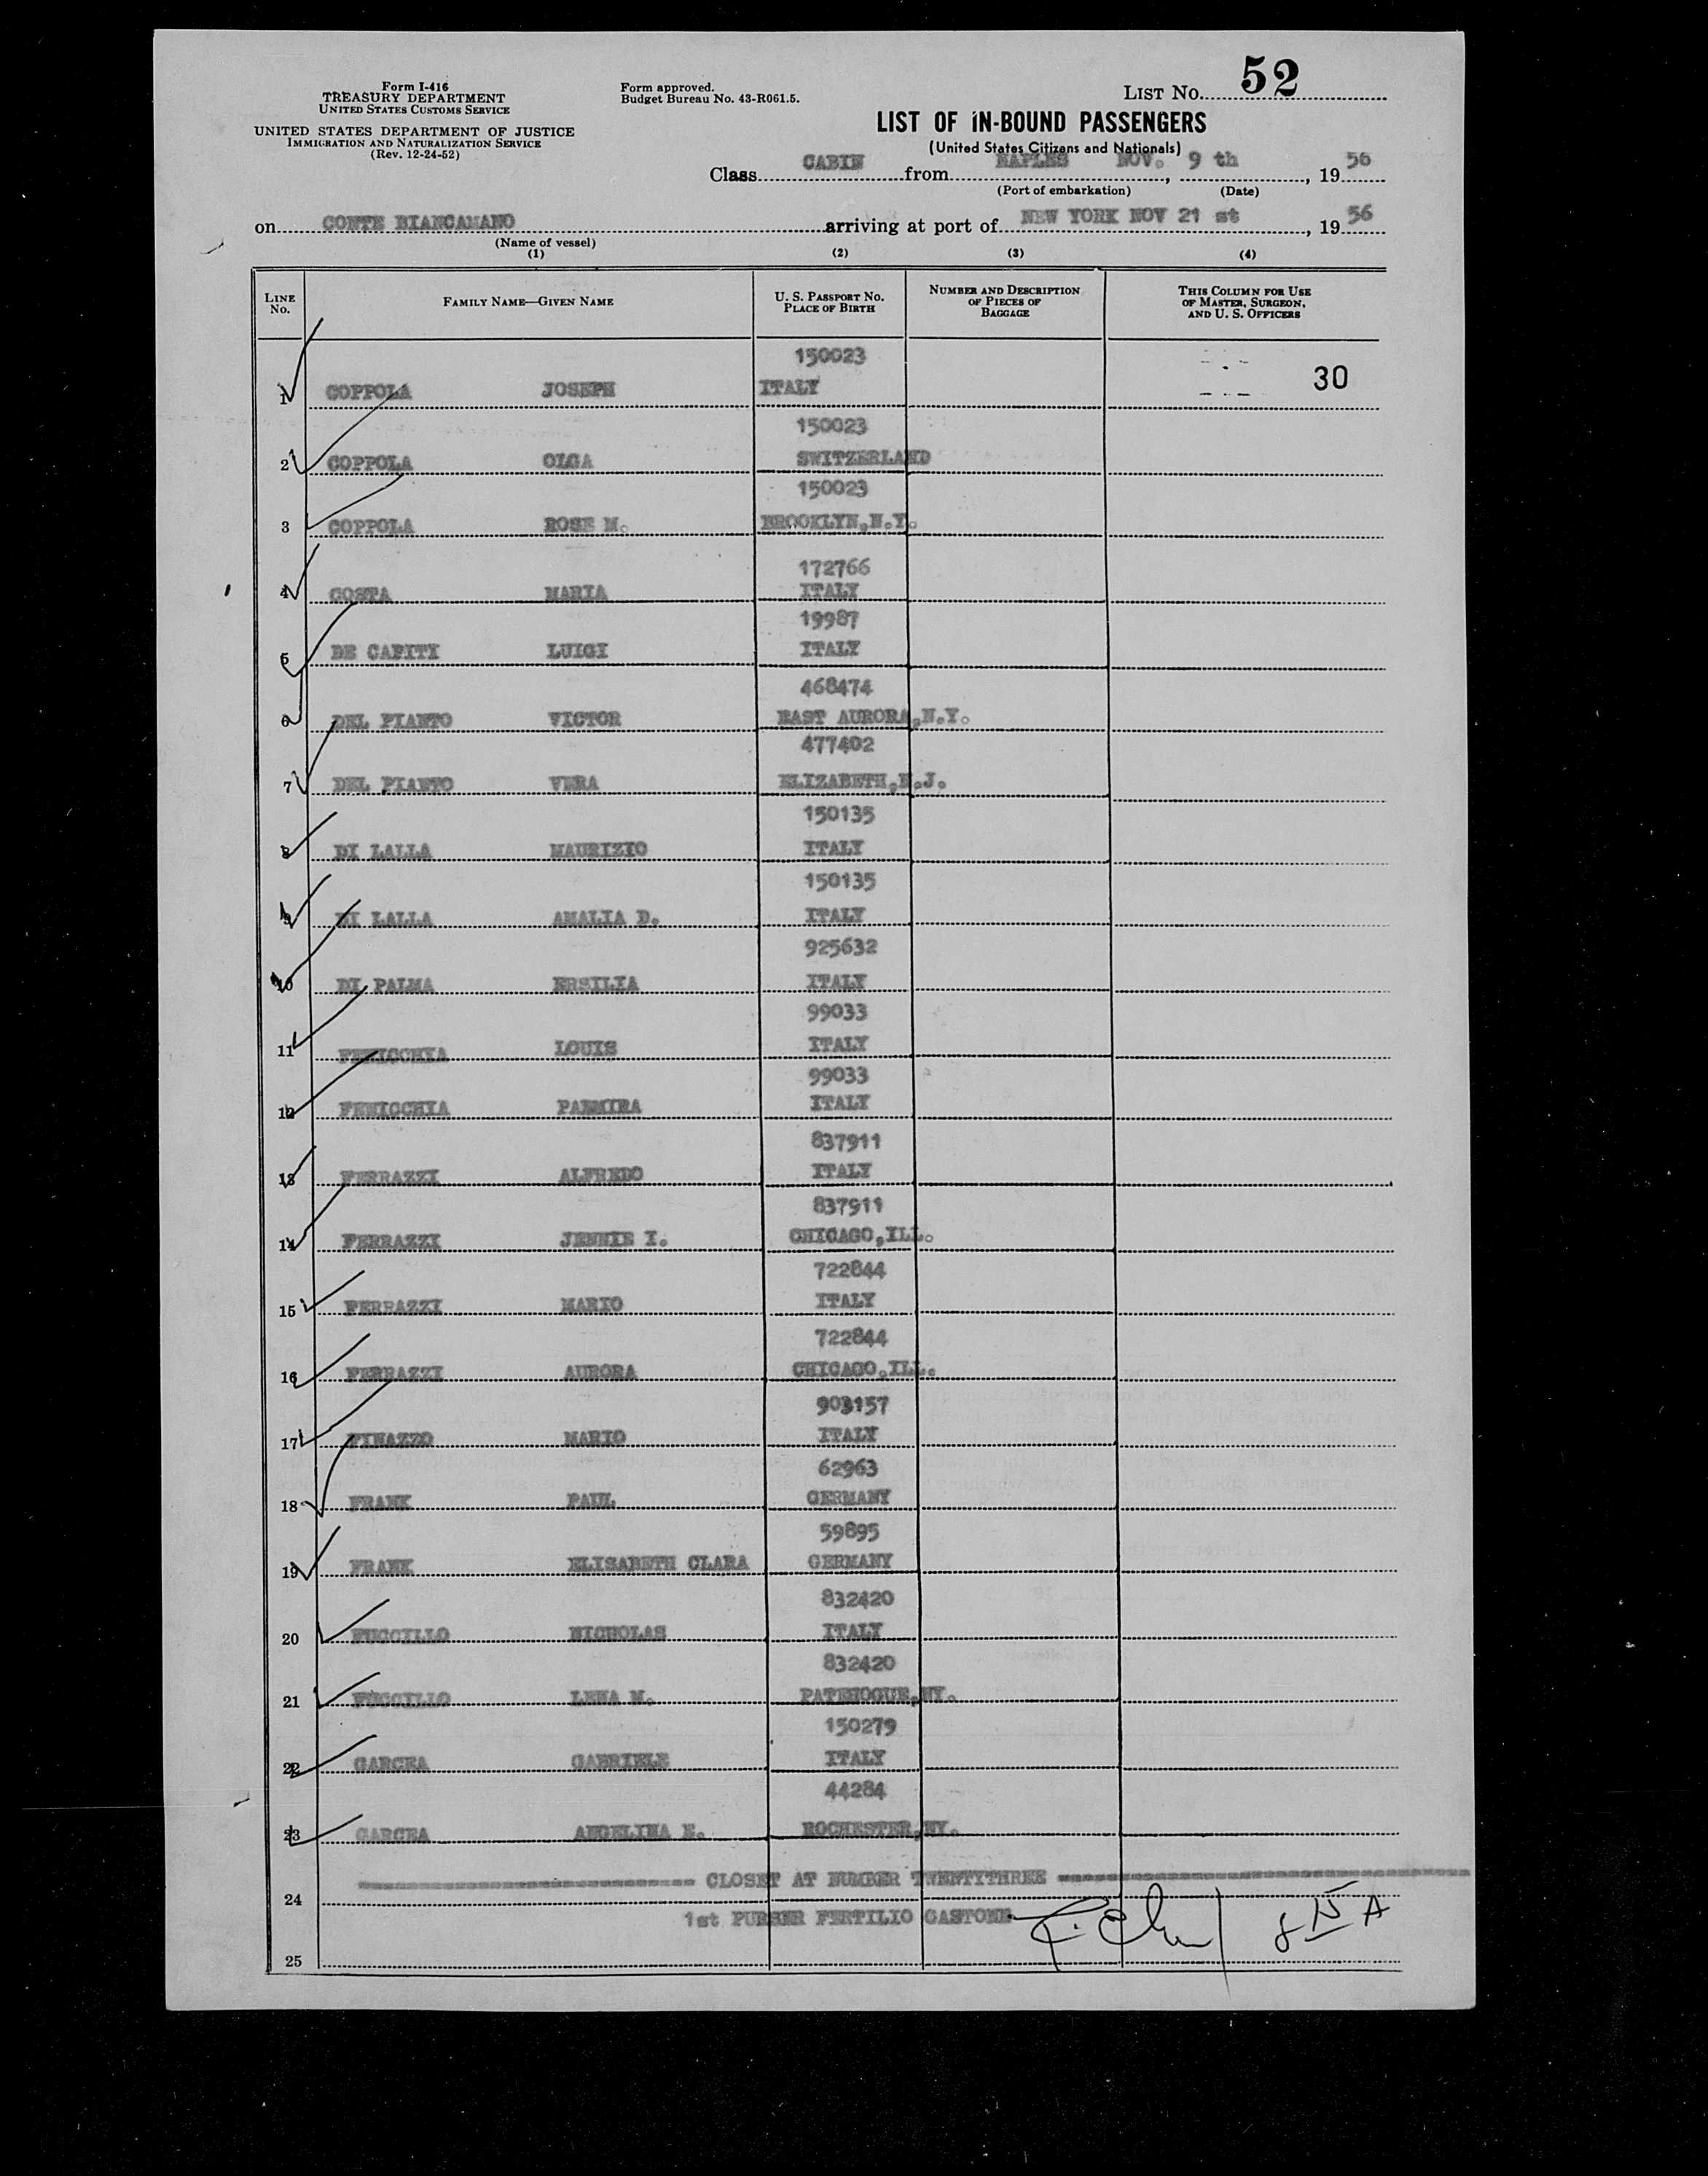 Form I-416
TREASURY DEPARTMENT
UNITED STATES CUSTOMS SERVICE
UNITED STATES DEPARTMENT OF JUSTICE
IMMIGRATION AND NATURALIZATION SERVICE
(Rev. 12-24-52)
Form approved.
Budget Bureau No. 43-R061.5.
LIST NO. 52
LIST OF IN-BOUND PASSENGERS
(United States Citizens and Nationals)
Class CABIN from NAPLES NOV. 9 th, 19 56
(Port of embarkation) (Date)
on CONTE BIANCAMANO arriving at port of NEW YORK NOV 21 st, 19 56
(Name of vessel)
(1) (2) (3) (4)
LINE NO. FAMILY NAME—GIVEN NAME U. S. PASSPORT NO. PLACE OF BIRTH NUMBER AND DESCRIPTION OF PIECES OF BAGGAGE THIS COLUMN FOR USE OF MASTER, SURGEON, AND U. S. OFFICERS
150023 30
1 COPPOLA JOSEPH ITALY
150023
2 COPPOLA OLGA SWITZERLAND
150023
3 COPPOLA ROSE M. BROOKLYN,N.Y.
172766
4 COSTA MARIA ITALY
19987
5 DE CAPITY LUIGI ITALY
468474
6 DEL PIANTO VICTOR EAST AURORA,N.Y.
477402
7 DEL PIANTO VERA ELIZABETH,N.J.
150135
8 DI LALLA MAURIZIO ITALY
150135
9 DI LALLA AMALIA D. ITALY
925632
10 DI PALMA ERSILIA ITALY
99033
11 FENICCHIA LOUIS ITALY
99033
12 FENICCHIA PALMIRA ITALY
837911
13 FERRAZZI ALFREDO ITALY
837911
14 FERRAZZI JENNIE I. CHICAGO,ILL.
722844
15 FERRAZZI MARIO ITALY
722844
16 FERRAZZI AURORA CHICAGO,ILL.
903157
17 FINAZZO MARIO ITALY
62963
18 FRANK PAUL GERMANY
59895
19 FRANK ELISABETH CLARA GERMANY
832420
20 FUCCILLO NICHOLAS ITALY
832420
21 FUCCILLO LENA M. PATEHOGUE,NY.
150279
22 GARCEA GABRIELE ITALY
44284
23 GARCEA ANGELINA E. ROCHESTER,NY.
CLOSET AT NUMBER TWENTYTHREE
24
1st PURSER FERTILIO GASTONE 8 15 A
25